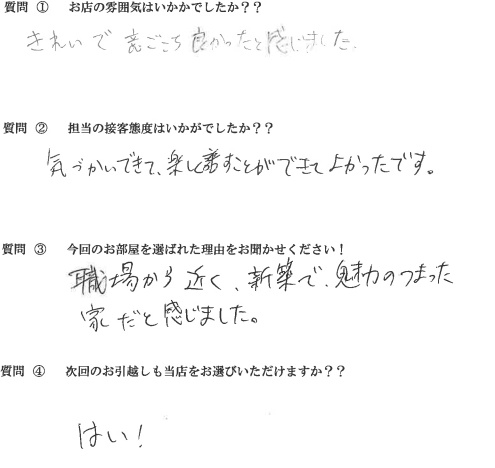 質問 ① お店の雰囲気はいかかでしたか？？
きれいで居ごこち良かったと感じました.
質問 ② 担当の接客態度はいかがでしたか？？
気づかいできて、楽しく話すことができてよかったです。
質問 ③ 今回のお部屋を選ばれた理由をお聞かせください！
職場から近く、新築で、魅力のつまった
家だと感じました。
質問 ④ 次回のお引越しも当店をお選びいただけますか？？
はい！